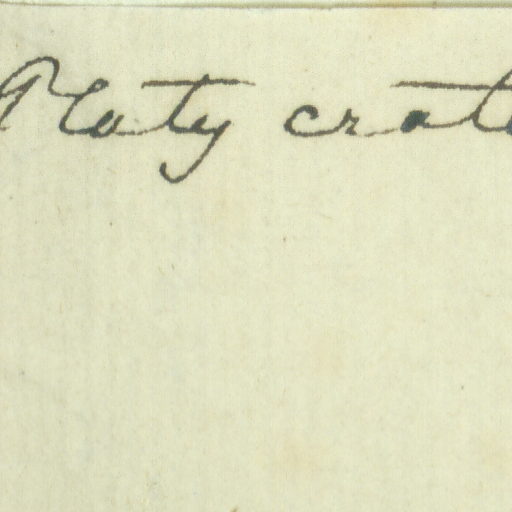 Platy crate